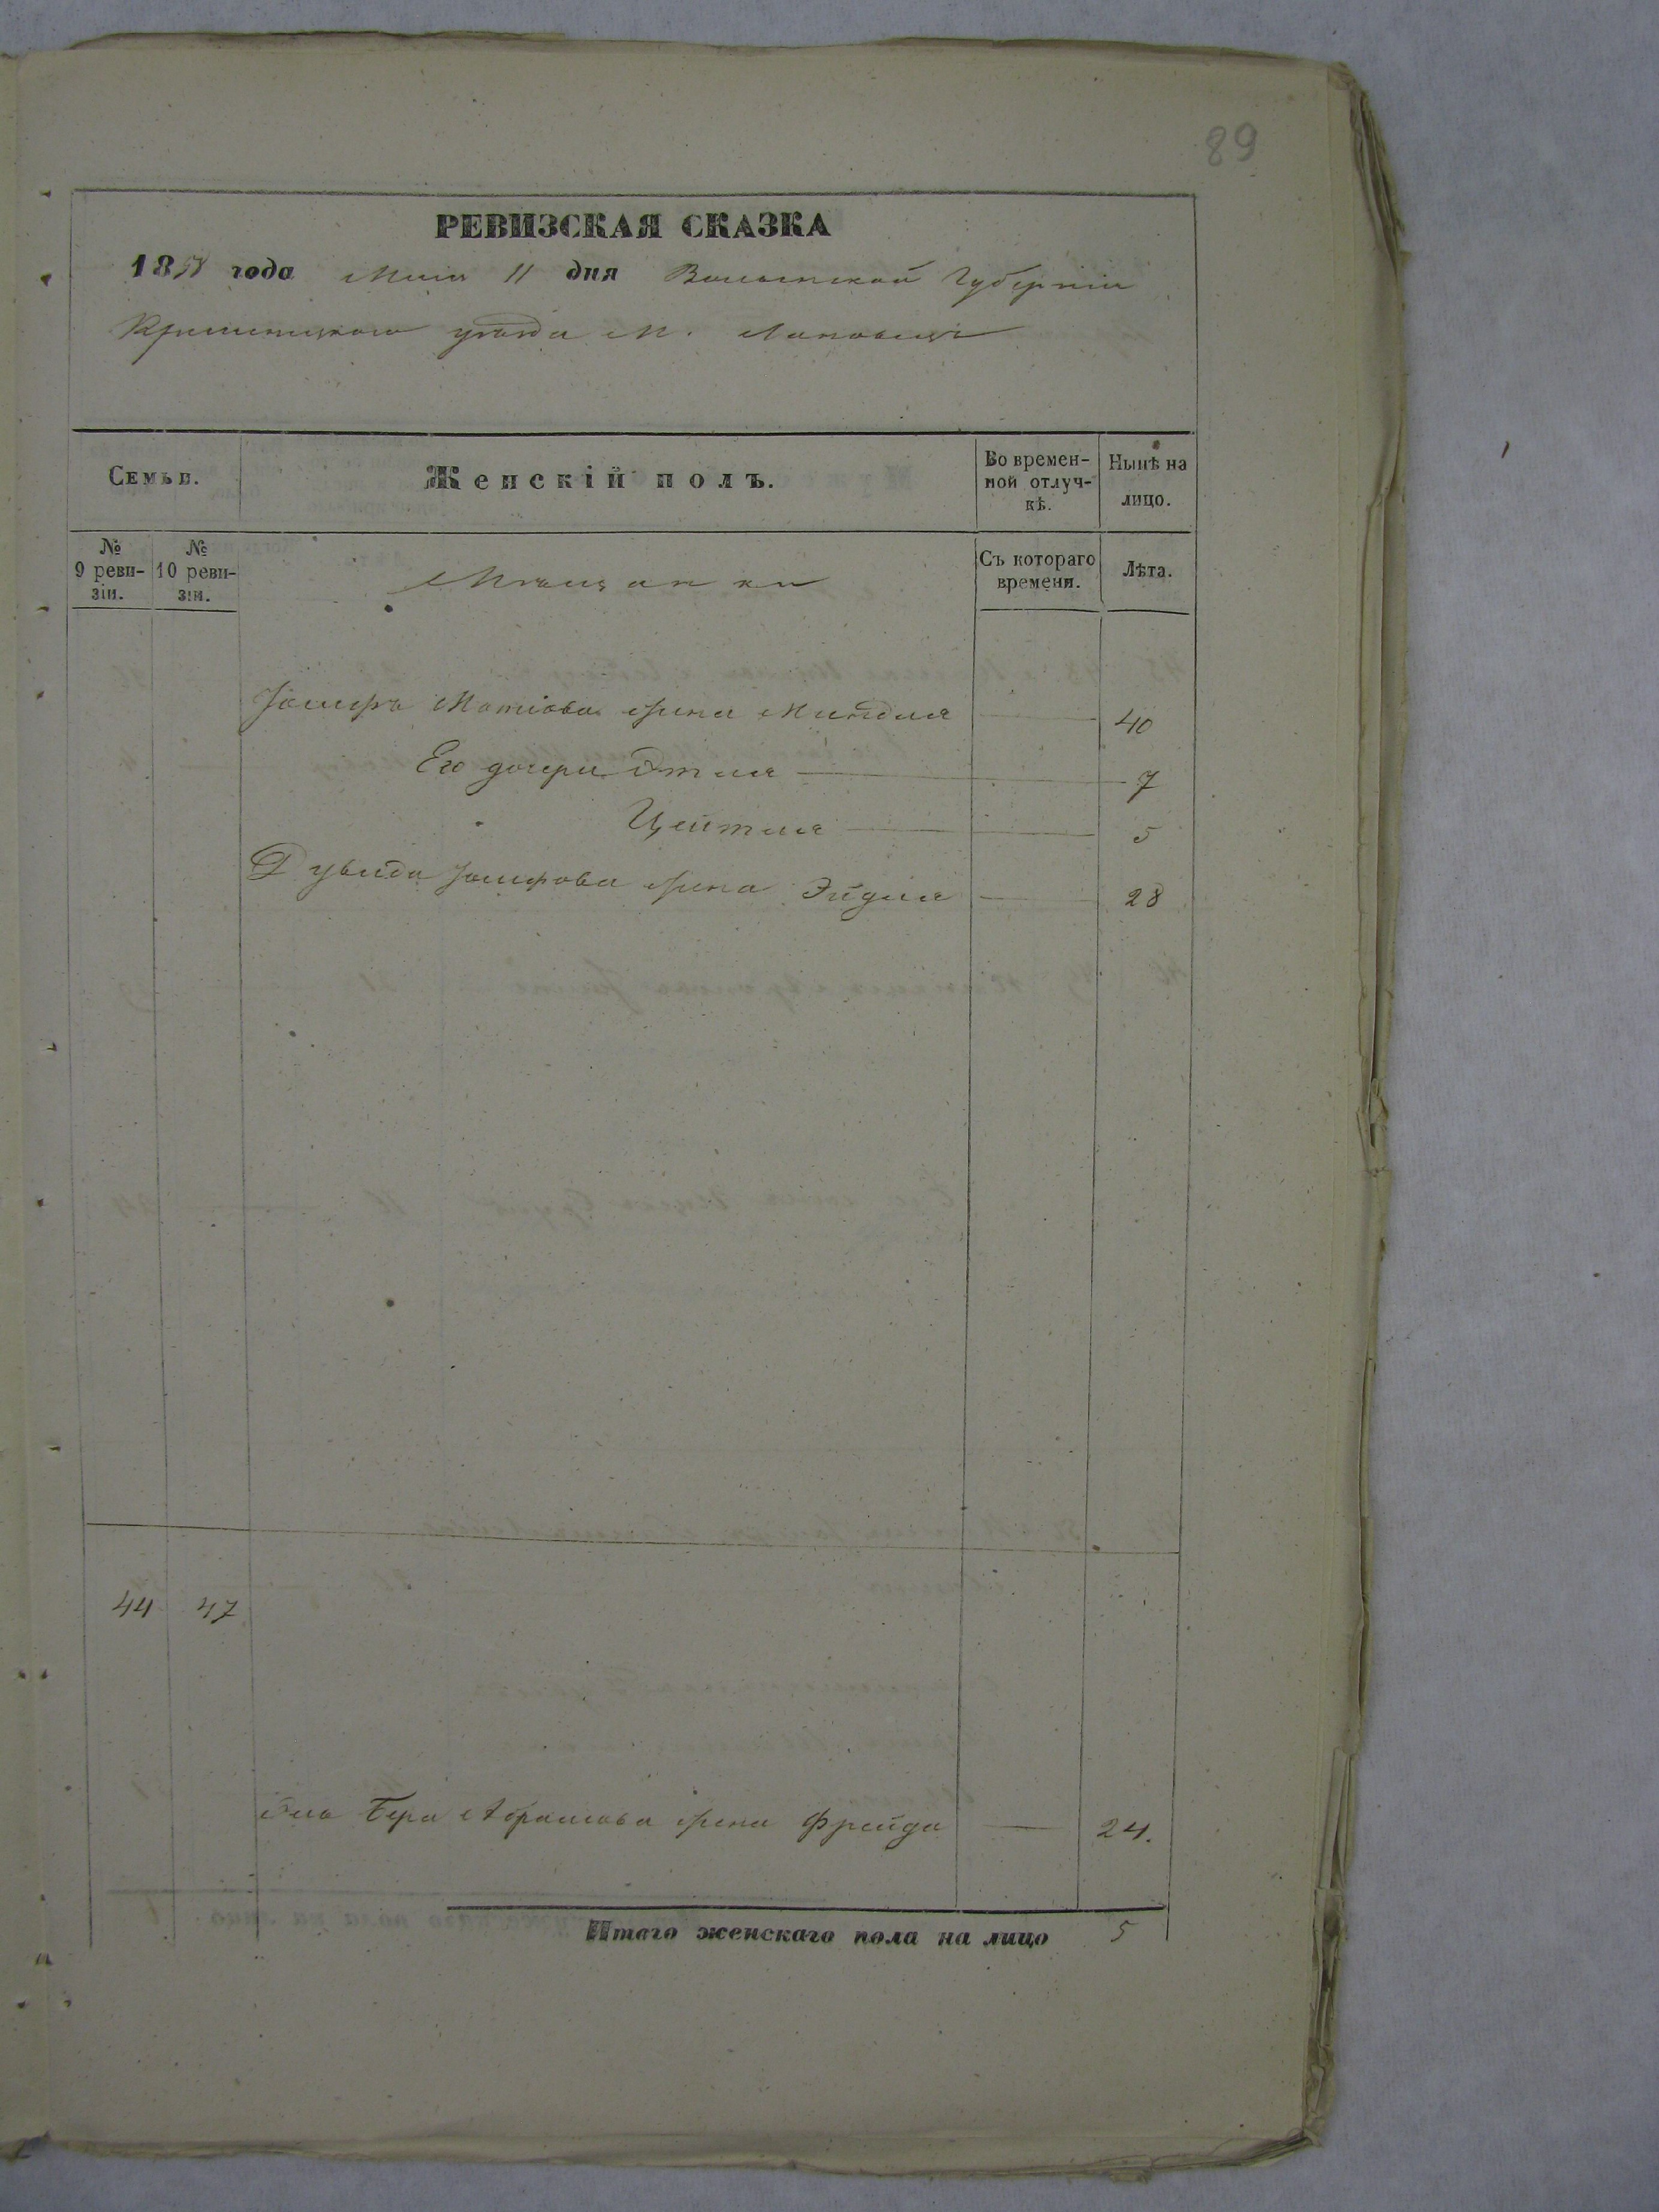 89
РЕВИЗСКАЯ СКАЗКА
1858 года Маія 11 дня Волынской Губерніи
Кременецкаго уѣзда М. Лановецъ
Семьи. Женскій полъ. Во времен-ной отлуч-кѣ. Нынѣ на лицо.
№ 9 реви-зіи. № 10 реви-зіи. Мѣщанки Съ котораго времени. Лѣта.
Іосифа Мотіова жена Миндля 40
Его дочери Этля 7
Цейтля 5
Дувида Іосифова жена Эйдля 28
44 47
Бера Абрамова жена Фрейда 24.
Итого женскаго пола на лицо 5